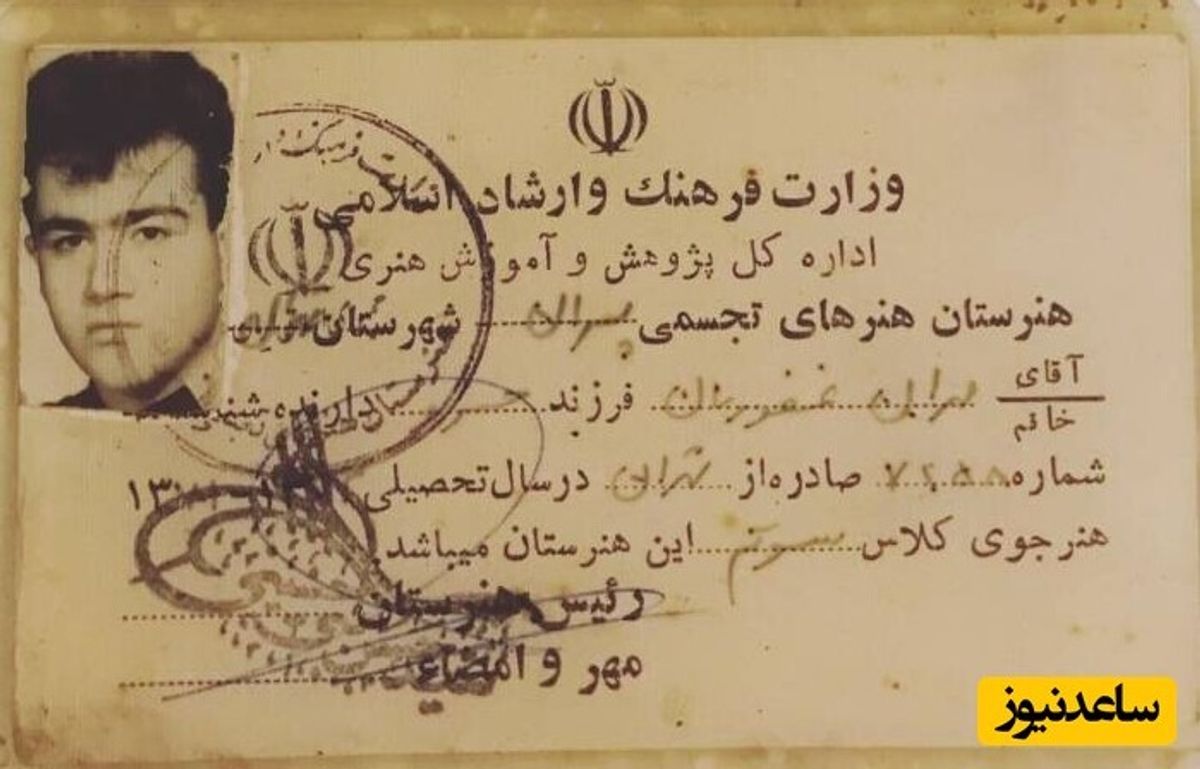 وزارت فرهنك وارشاد اسلامی
اداره كل پژوهش و آموزش هنری
هنرستان هنرهای تجسمی پسران شهرستان تهران
آقای
خانم
مهران غفوریان فرزند دارنده شناسنامه
شماره صادره از تهران در سال تحصیلی
هنرجوی كلاس سوم این هنرستان میباشد
رئیس هنرستان
مهر و امضاء
ساعدنیوز